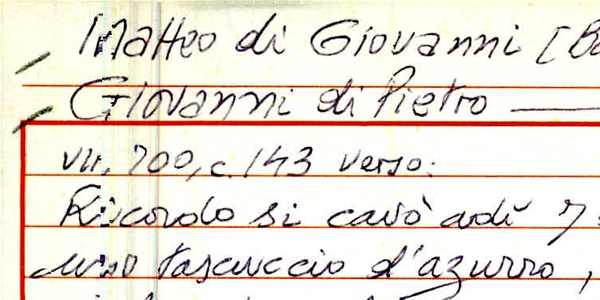 Matteo di Giovanni [Ba
Giovanni di Pietro
VII. 700, c. 143 verso:
Ricordo si cavò adì 7
uno tascuccio d'azzurro,